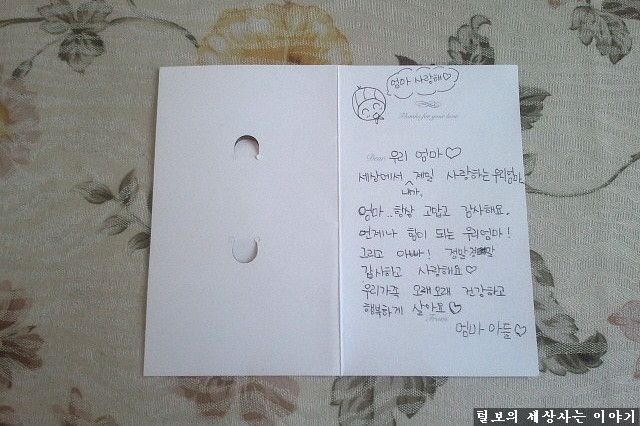 엄마 사랑해♡
Thanks for your love
Dear 우리 엄마♡
세상에서 제일 사랑하는 우리엄마
내가,
엄마.. 항상 고맙고 감사해요.
언제나 힘이 되는 우리엄마!
그리고 아빠! 정말정말
감사하고 사랑해요♡
우리가족 오래오래 건강하고
행복하게 살아요♡
From
엄마 아들♡
털보의 세상사는 이야기